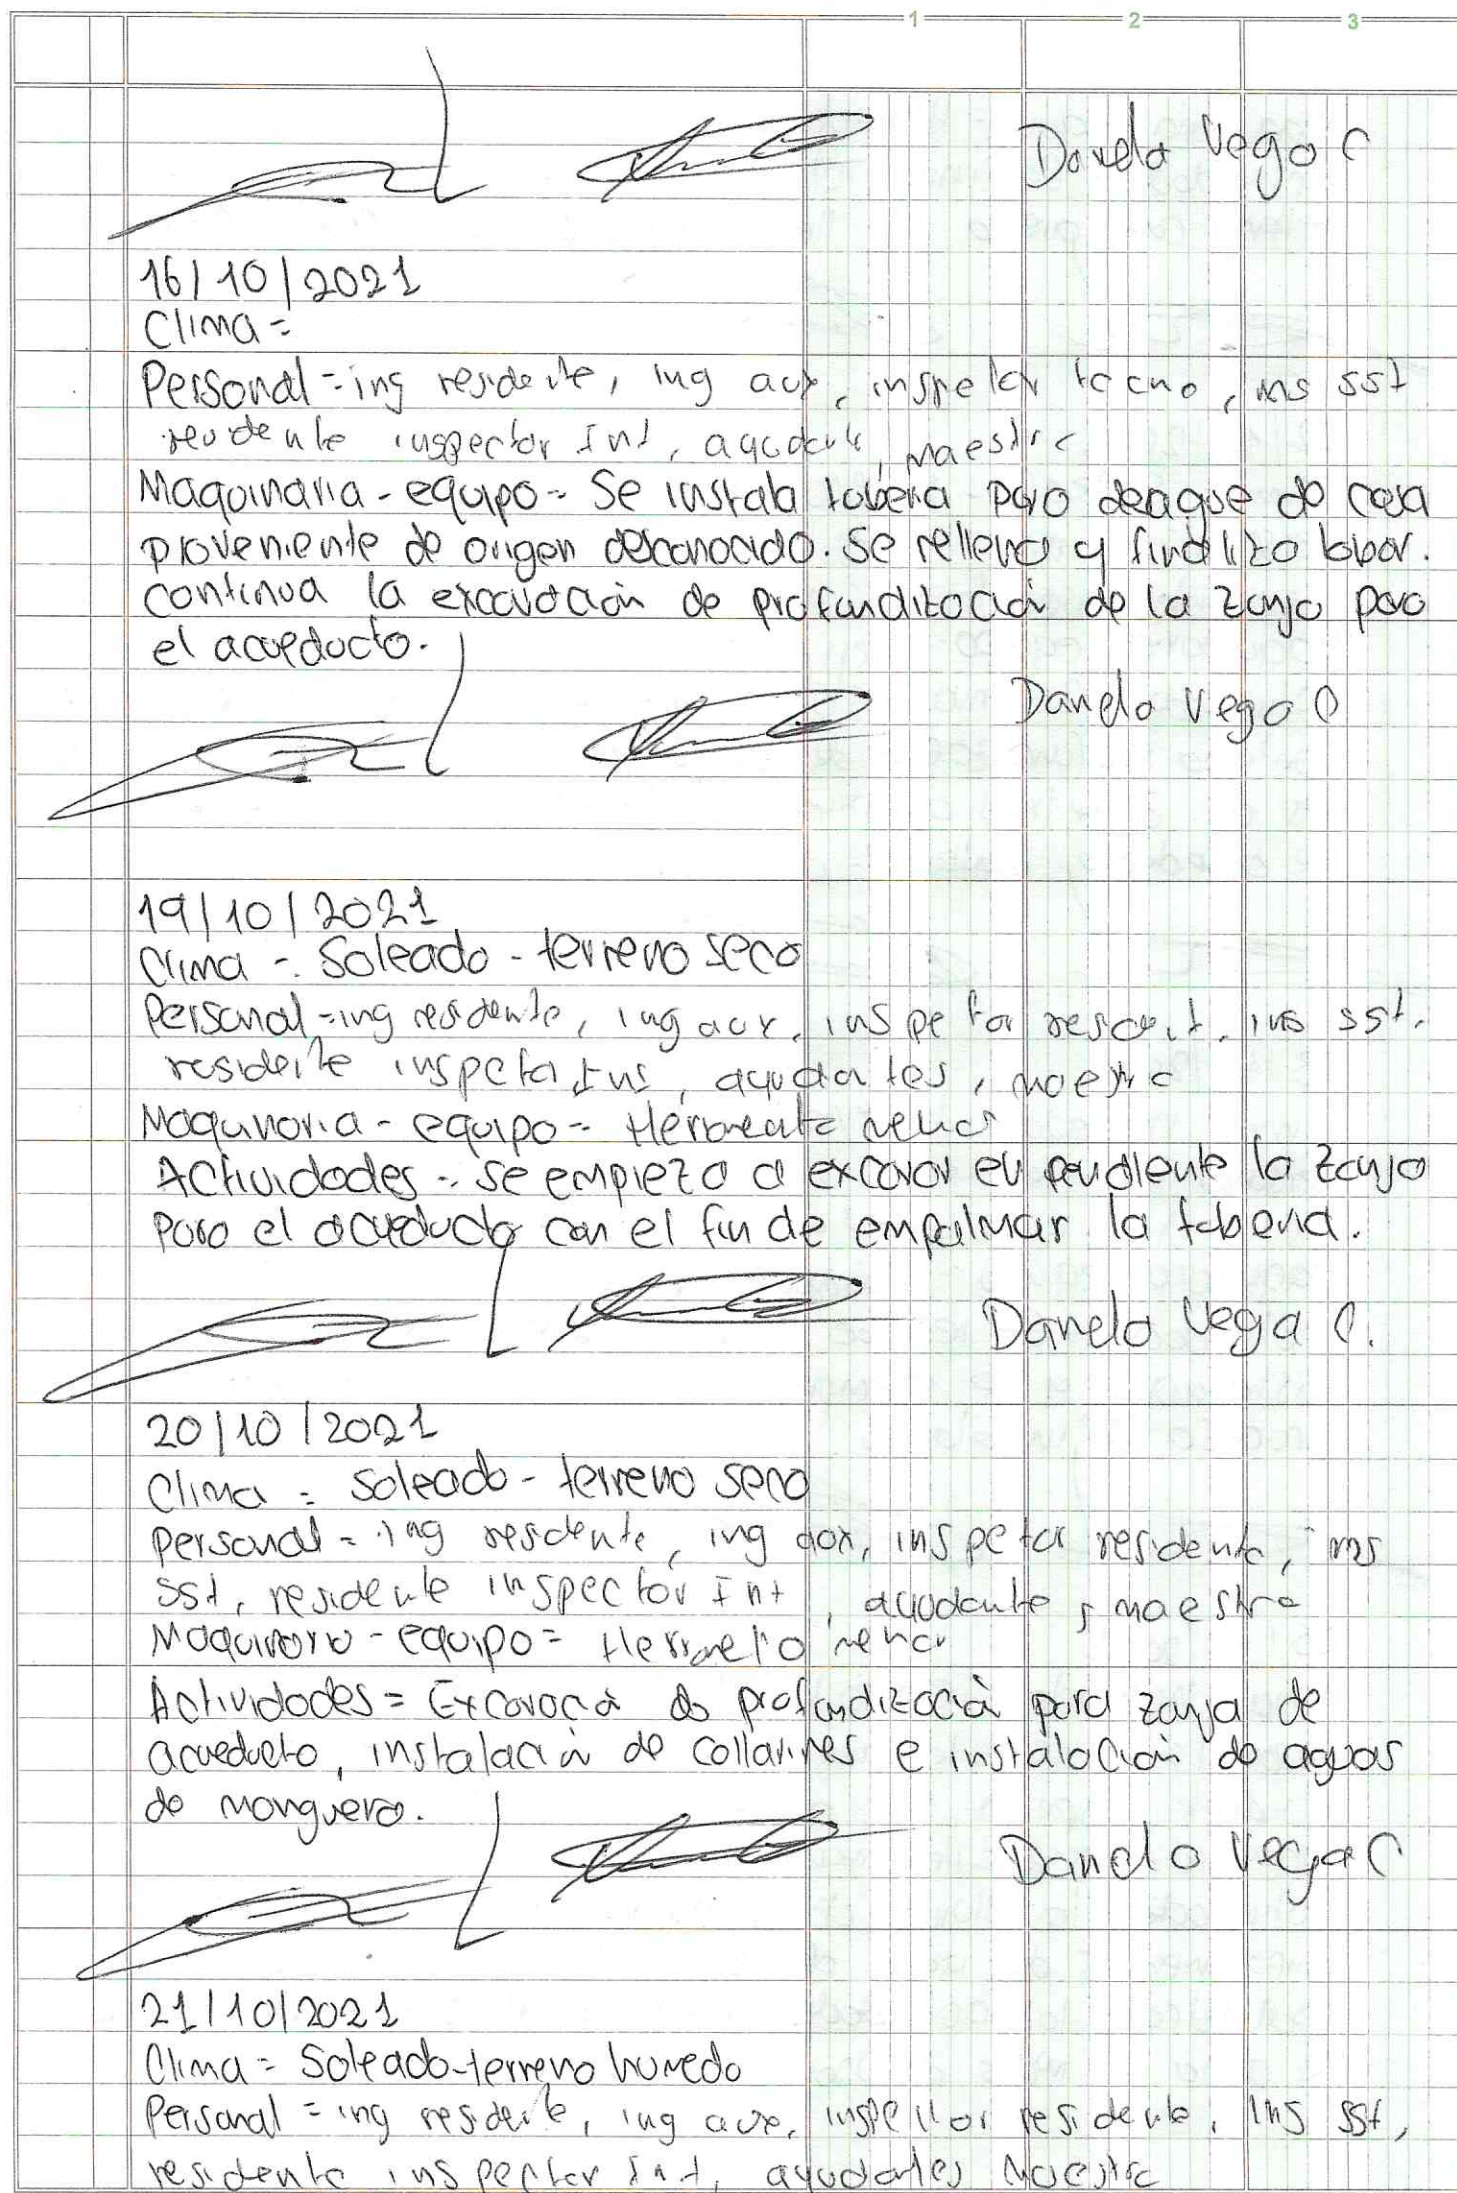 1 2 3
Daniela Vega C
16/10/2021
Clima =
Personal = ing residente, ing aux, inspector tecno, ins sst
residente inspector Int, ayudante, maestro
Maquinaria - equipo = Se instala tuberia para desague de casa
proveniente de origen desconocido. Se relleno y finalizo labor.
continua la excavación de profundización de la zanja para
el acueducto.
Daniela Vega C
19/10/2021
Clima = Soleado - terreno seco
Personal = ing residente, ing aux, inspector resident, ins sst,
residente inspector Int, ayudantes, maestro
Maquinaria - equipo = Herramienta menor
Actividades = se empieza a excavar en pendiente la zanja
para el acueducto con el fin de empalmar la tuberia.
Daniela Vega C.
20/10/2021
Clima = Soleado - terreno seco
Personal = ing residente, ing aux, inspector residente, ins
sst, residente inspector Int, ayudante, maestro
Maquinaria - equipo = Herramienta menor
Actividades = Excavación de profundización para zanja de
acueducto, instalación de collarines e instalación de aguas
de manguera.
Daniela Vega C
21/10/2021
Clima = Soleado - terreno humedo
Personal = ing residente, ing aux, inspector residente, ins sst,
residente inspector Int, ayudantes maestro